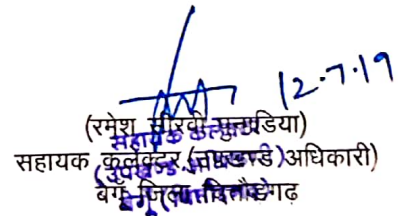 12.7.19
(रमेश सीरवी पुनाडिया)
सहायक कलेक्टर (उपखण्ड अधिकारी)
बेगू जिला चित्तौडगढ